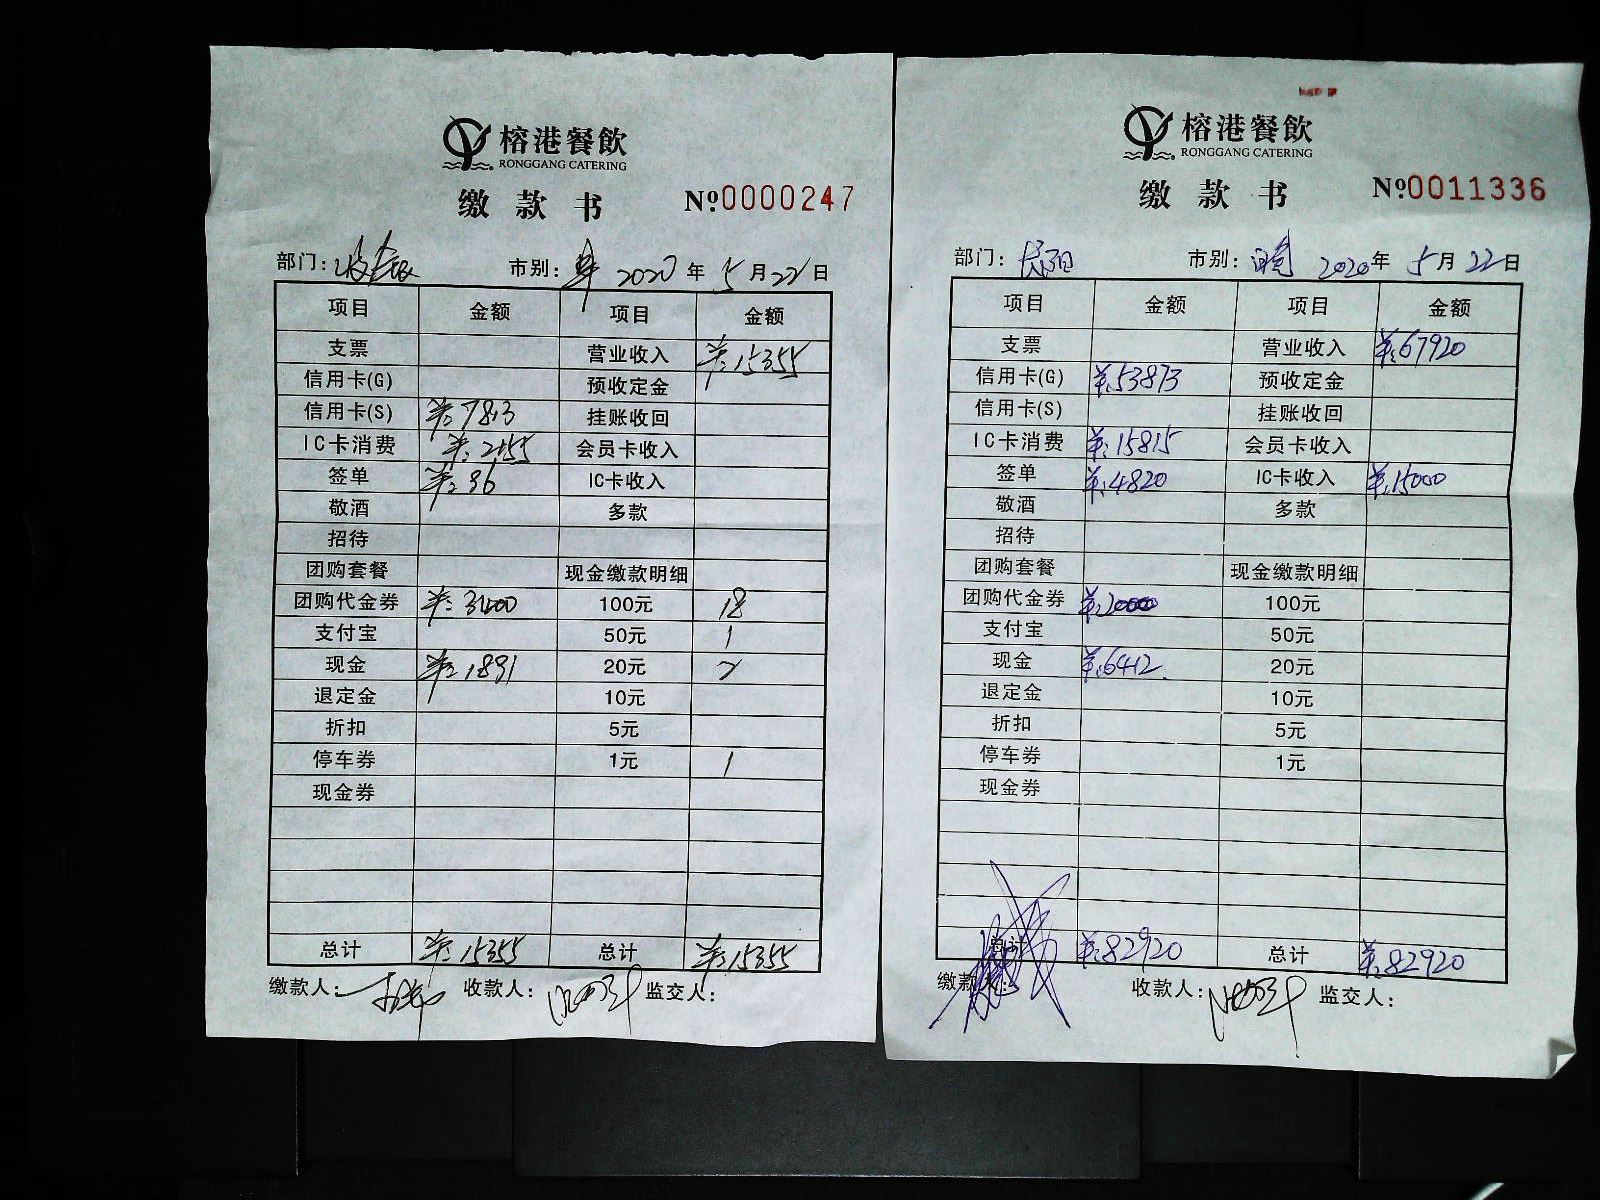 榕港餐飲
RONGGANG CATERING
缴款书 №0000247
部门: 市别: 2020年5月22日
项目 金额 项目 金额
支票 营业收入 ¥:15355
信用卡(G) 预收定金
信用卡(S) ¥:7813 挂账收回
IC卡消费 ¥:2155 会员卡收入
签单 ¥:96 IC卡收入
敬酒 多款
招待
团购套餐 现金缴款明细
团购代金券 ¥:3400 100元 18
支付宝 50元 1
现金 ¥:1891 20元 2
退定金 10元
折扣 5元
停车券 1元 1
现金券
总计 ¥:15355 总计 ¥:15355
缴款人: 收款人: 监交人:
榕港餐飲
RONGGANG CATERING
缴款书 №0011336
部门: 市别: 2020年5月22日
项目 金额 项目 金额
支票 营业收入 ¥:67920
信用卡(G) ¥:53873 预收定金
信用卡(S) 挂账收回
IC卡消费 ¥:15815 会员卡收入
签单 ¥:4820 IC卡收入 ¥:15000
敬酒 多款
招待
团购套餐 现金缴款明细
团购代金券 100元
支付宝 50元
现金 ¥:6412 20元
退定金 10元
折扣 5元
停车券 1元
现金券
总计 ¥:82920 总计 ¥:82920
缴款人: 收款人: 监交人: